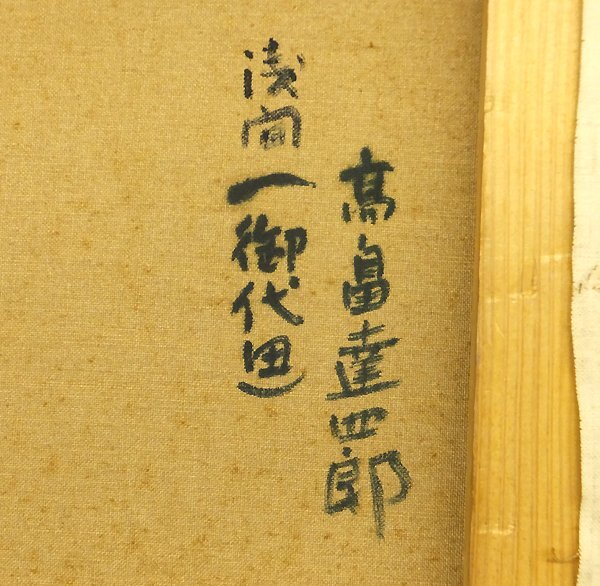 高畠達四郎
浅間(御代田)